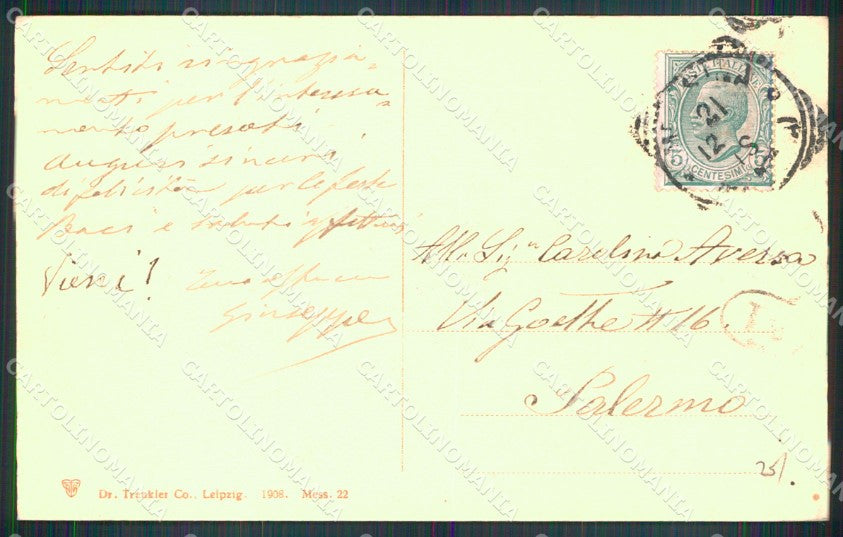 Sentiti ringrazia-
menti per l'interessa-
mento presosi.
Auguri sinceri
di felicità per le feste
Baci e saluti affettuosi
Vieni!
Giuseppe
Alla Sig.na Carolina Aversa
Via Goethe # 16
Palermo
POSTE ITALIANE
5 CENTESIMI 5
12 21
Dr. Trenkler Co., Leipzig. 1908. Mess. 22
CARTOLINOMANIA